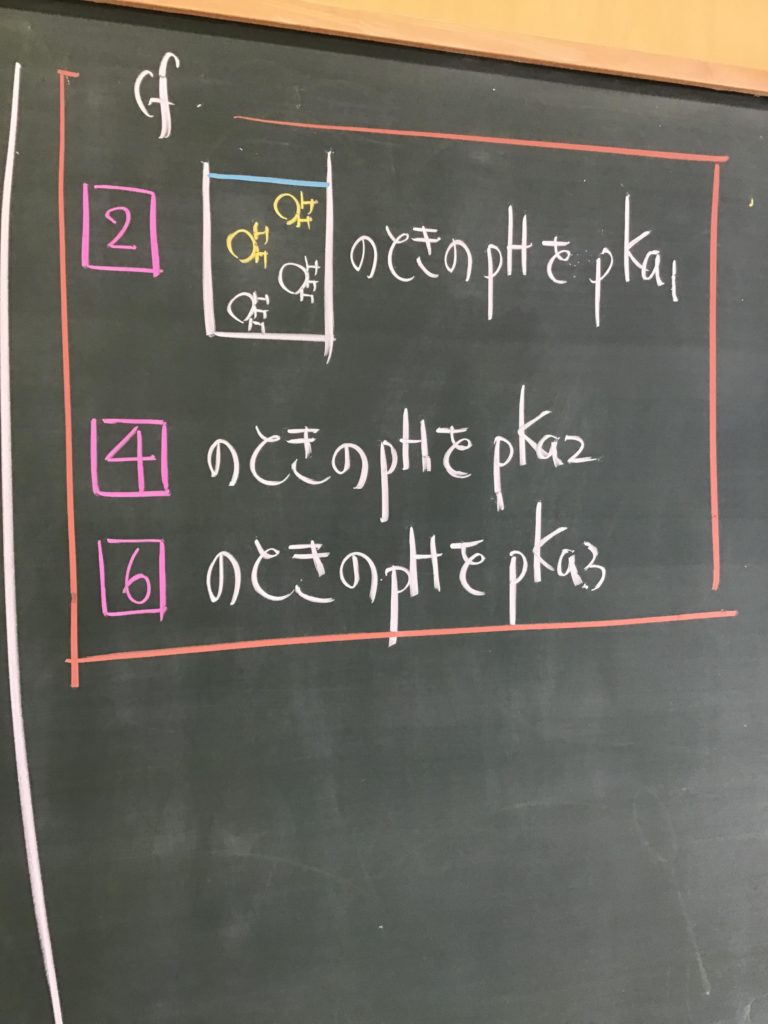 cf.
2 のときのpHをpKa1
4 のときのpHをpKa2
6 のときのpHをpKa3